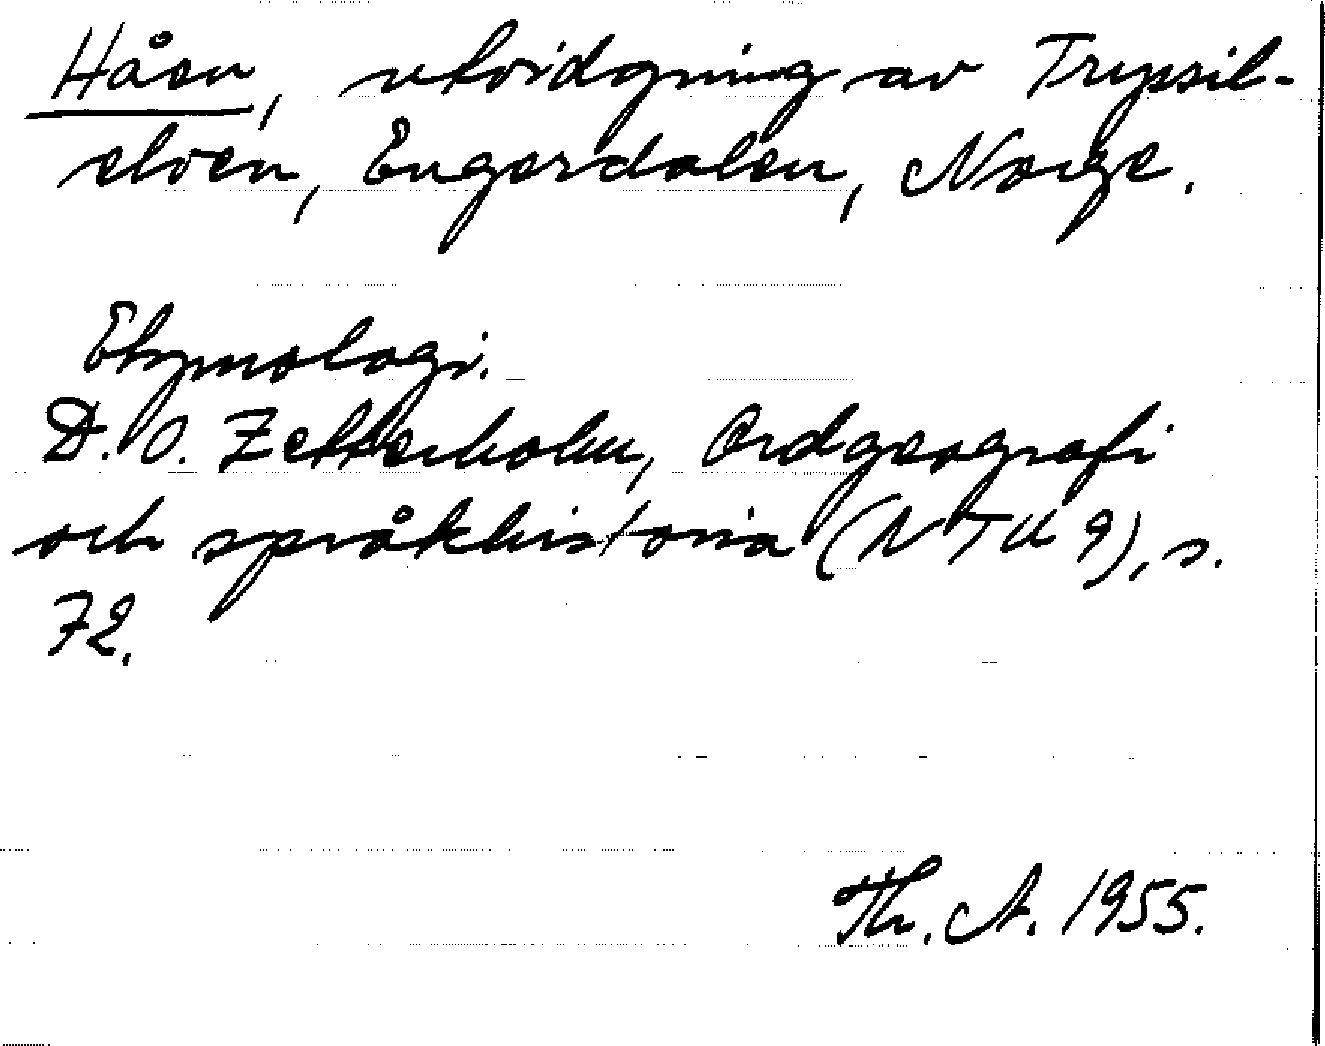 Håen, utvidgning av Trysil-
elven, Engerdalen, Norge.
Etymologi.
D. O. Zetterholm, Ordgeografi
och språkhistoria (NTU 9), s.
72.
Th. A. 1955.